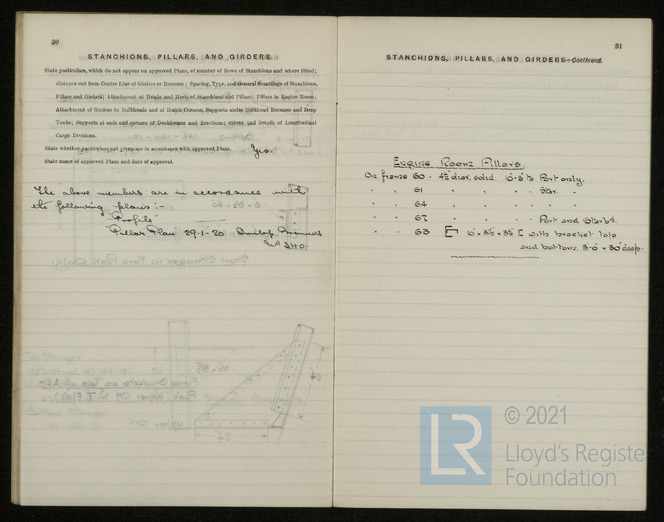 30
STANCHIONS, PILLARS, AND GIRDERS.
State particulars, which do not appear on approved Plans, of number of Rows of Stanchions and where fitted;
distance out from Centre Line of Girders or Runners; Spacing, Type, and General Scantlings of Stanchions,
Pillars and Girders; Attachment at Heads and Heels of Stanchions and Pillars; Pillars in Engine Room;
Attachment of Girders to Bulkheads and at Hatch Corners, Supports under Bulkhead Recesses and Deep
Tanks; Supports at ends and corners of Deckhouses and Erections; extent and details of Longitudinal
Cargo Divisions.
State whether particulars not given are in accordance with approved Plans. Yes.
State name of approved Plans and date of approval.
The above members are in accordance with
the following plans:-
"Profile"
"Pillar Plan 29-1-20 Dunlop Bremners
No 340.
31
STANCHIONS, PILLARS, AND GIRDERS—Continued.
Engine Room Pillars.
On frame 60 - 4½" diar. solid. 10-3½ Port only.
" " 61 " " " " Star.
" " 64 " " " " "
" " 67 " " " Port and Starbd.
" " 63 [ 10" × 3½ × 3½ [ with bracket tops
and bottoms. 3-0" × 30" deep.
© 2021
LR
Lloyd's Register
Foundation